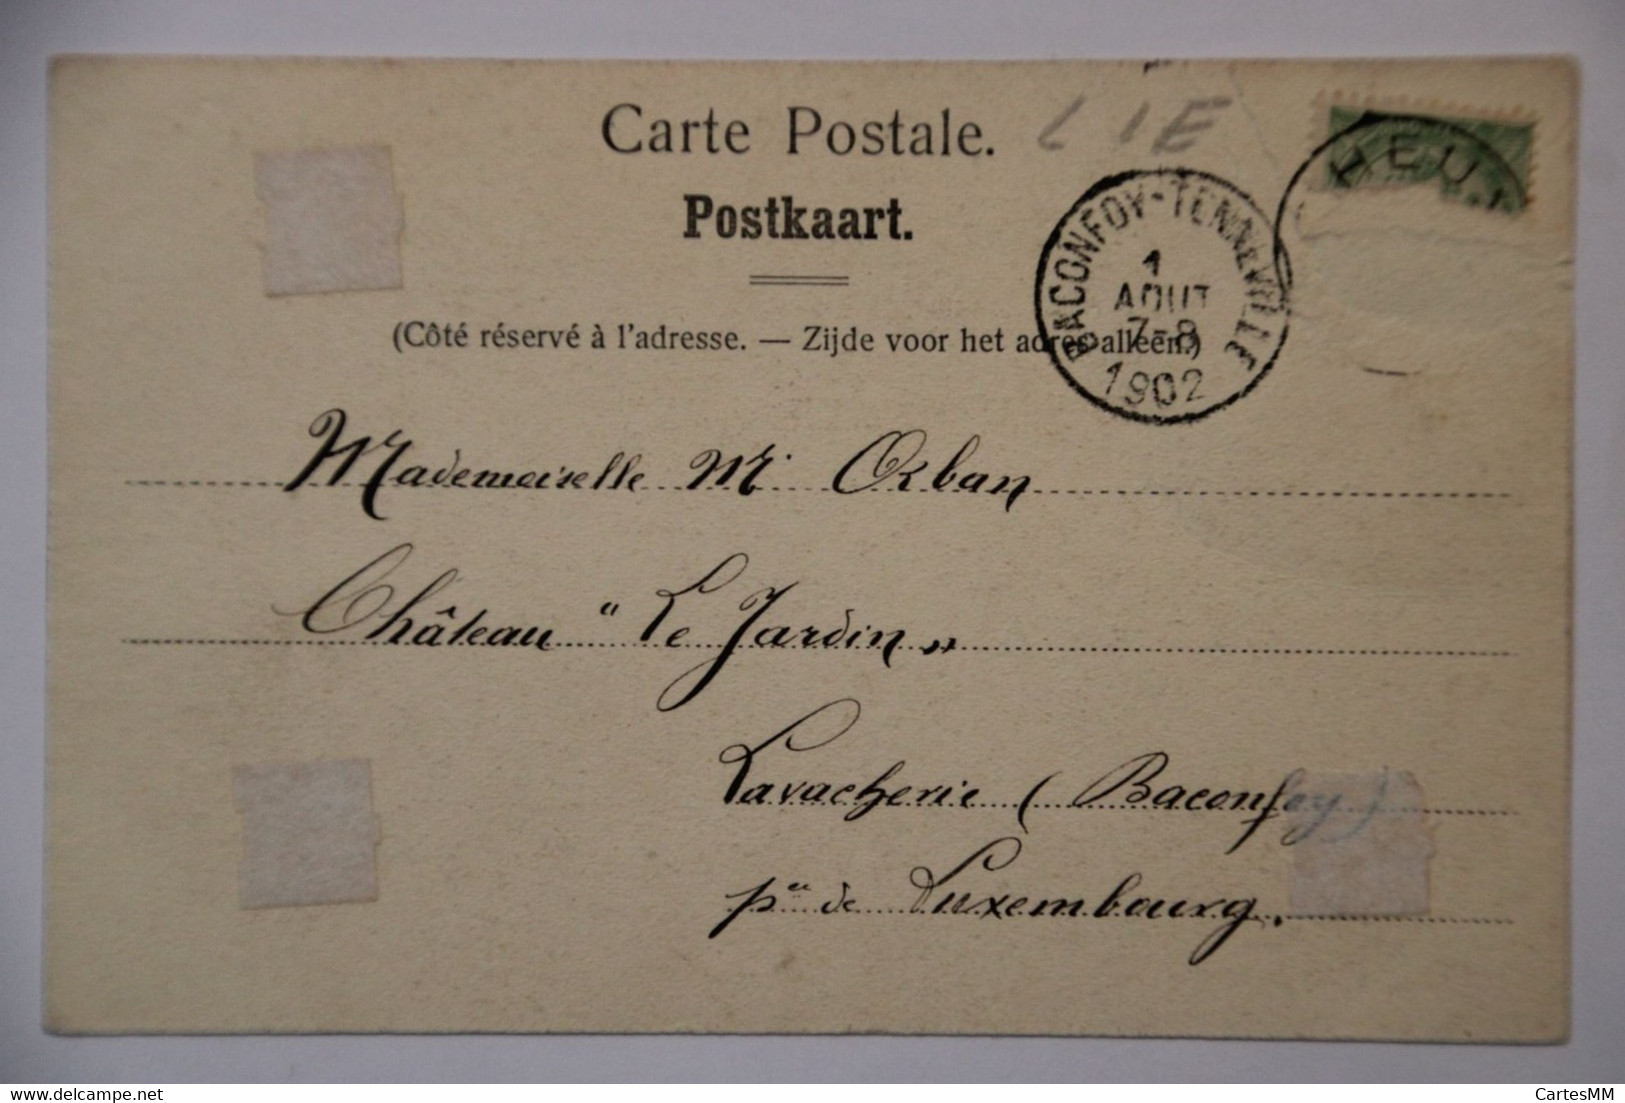 Carte Postale.
LIE
Postkaart.
(Côté réservé à l'adresse. — Zijde voor het adres alleen.)
BACONFOY-TENNEVILLE
1
AOUT
7-8
1902
HEU
Mademoiselle M. Orban
Château "Le Jardin"
Lavacherie (Baconfoy)
p^ce de Luxembourg.
CartesMM